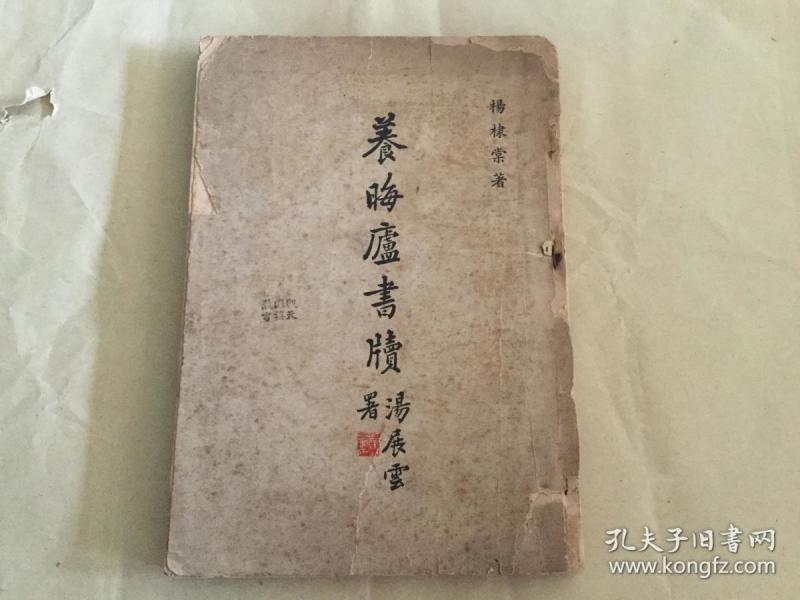 楊棣棠著
養晦廬書牘
湯展雲
署
孔夫子旧书网
www.kongfz.com